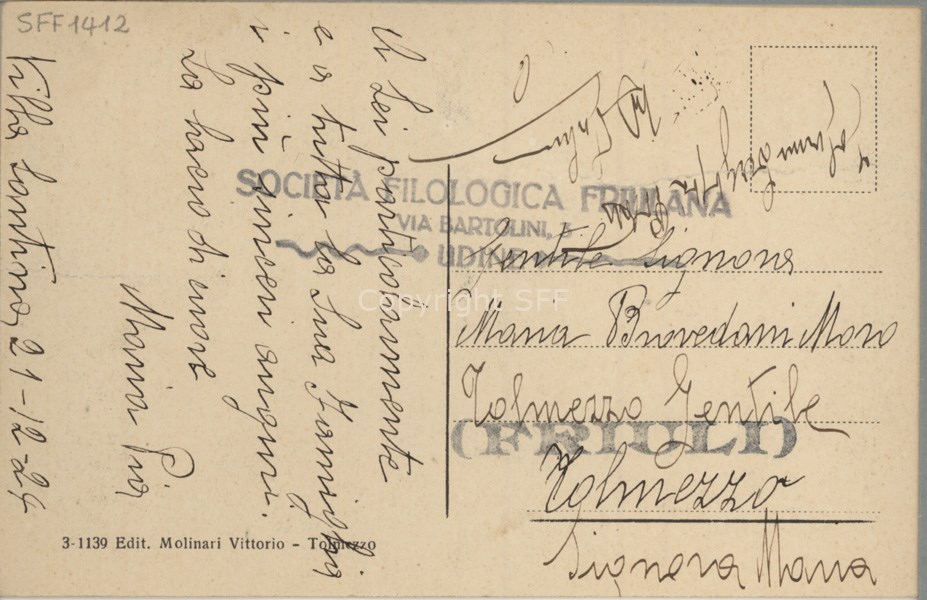 SFF1412
A Lei particolarmente
e a tutta la Sua Famiglia
i più sinceri auguri.
La bacio di cuore
Maria Pia
Villa Santina, 21-12-24
SOCIETÀ FILOLOGICA FRIULANA
VIA BARTOLINI, 3
UDINE
Copyright SFF
Gentile Signora
Maria Brovedani Moro
Tolmezzo Gentile
(FRIULI)
Tolmezzo
Signora Maria
3-1139 Edit. Molinari Vittorio - Tolmezzo